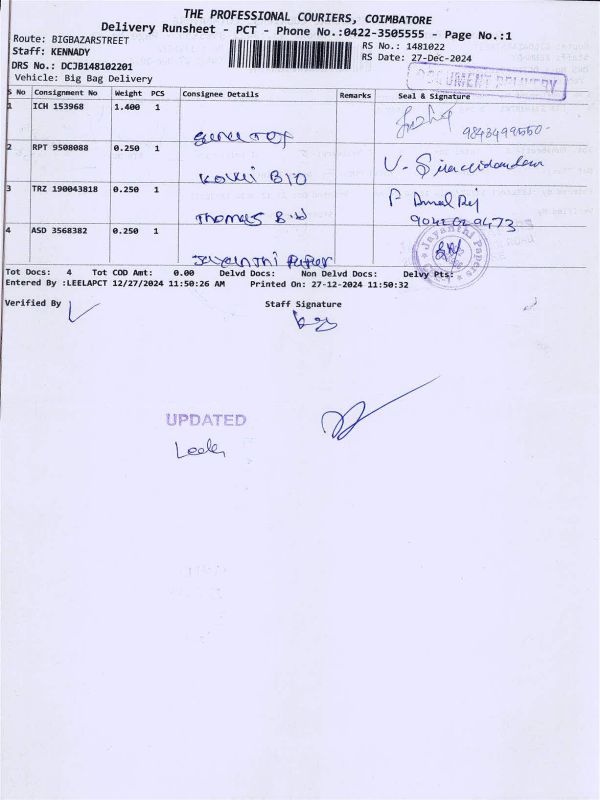 THE PROFESSIONAL COURIERS, COIMBATORE
Delivery Runsheet - PCT - Phone No.:0422-3505555 - Page No.:1
Route: BIGBAZARSTREET
RS No.: 1481022
Staff: KENNADY
RS Date: 27-Dec-2024
DRS No.: DCJB148102201
DOCUMENT DELIVERY
Vehicle: Big Bag Delivery
S No Consignment No Weight PCS Consignee Details Remarks Seal & Signature
1 ICH 153968 1.400 1
9843499550
2 RPT 9508088 0.250 1
Kovai Bio
3 TRZ 190043818 0.250 1
Thomas B.
4 ASD 3568382 0.250 1
Jayanthi Paper
Jayanthi Papers
Tot Docs: 4 Tot COD Amt: 0.00 Delvd Docs: Non Delvd Docs: Delvy Pts:
Entered By :LEELAPCT 12/27/2024 11:50:26 AM Printed On: 27-12-2024 11:50:32
Verified By Staff Signature
UPDATED
Leela